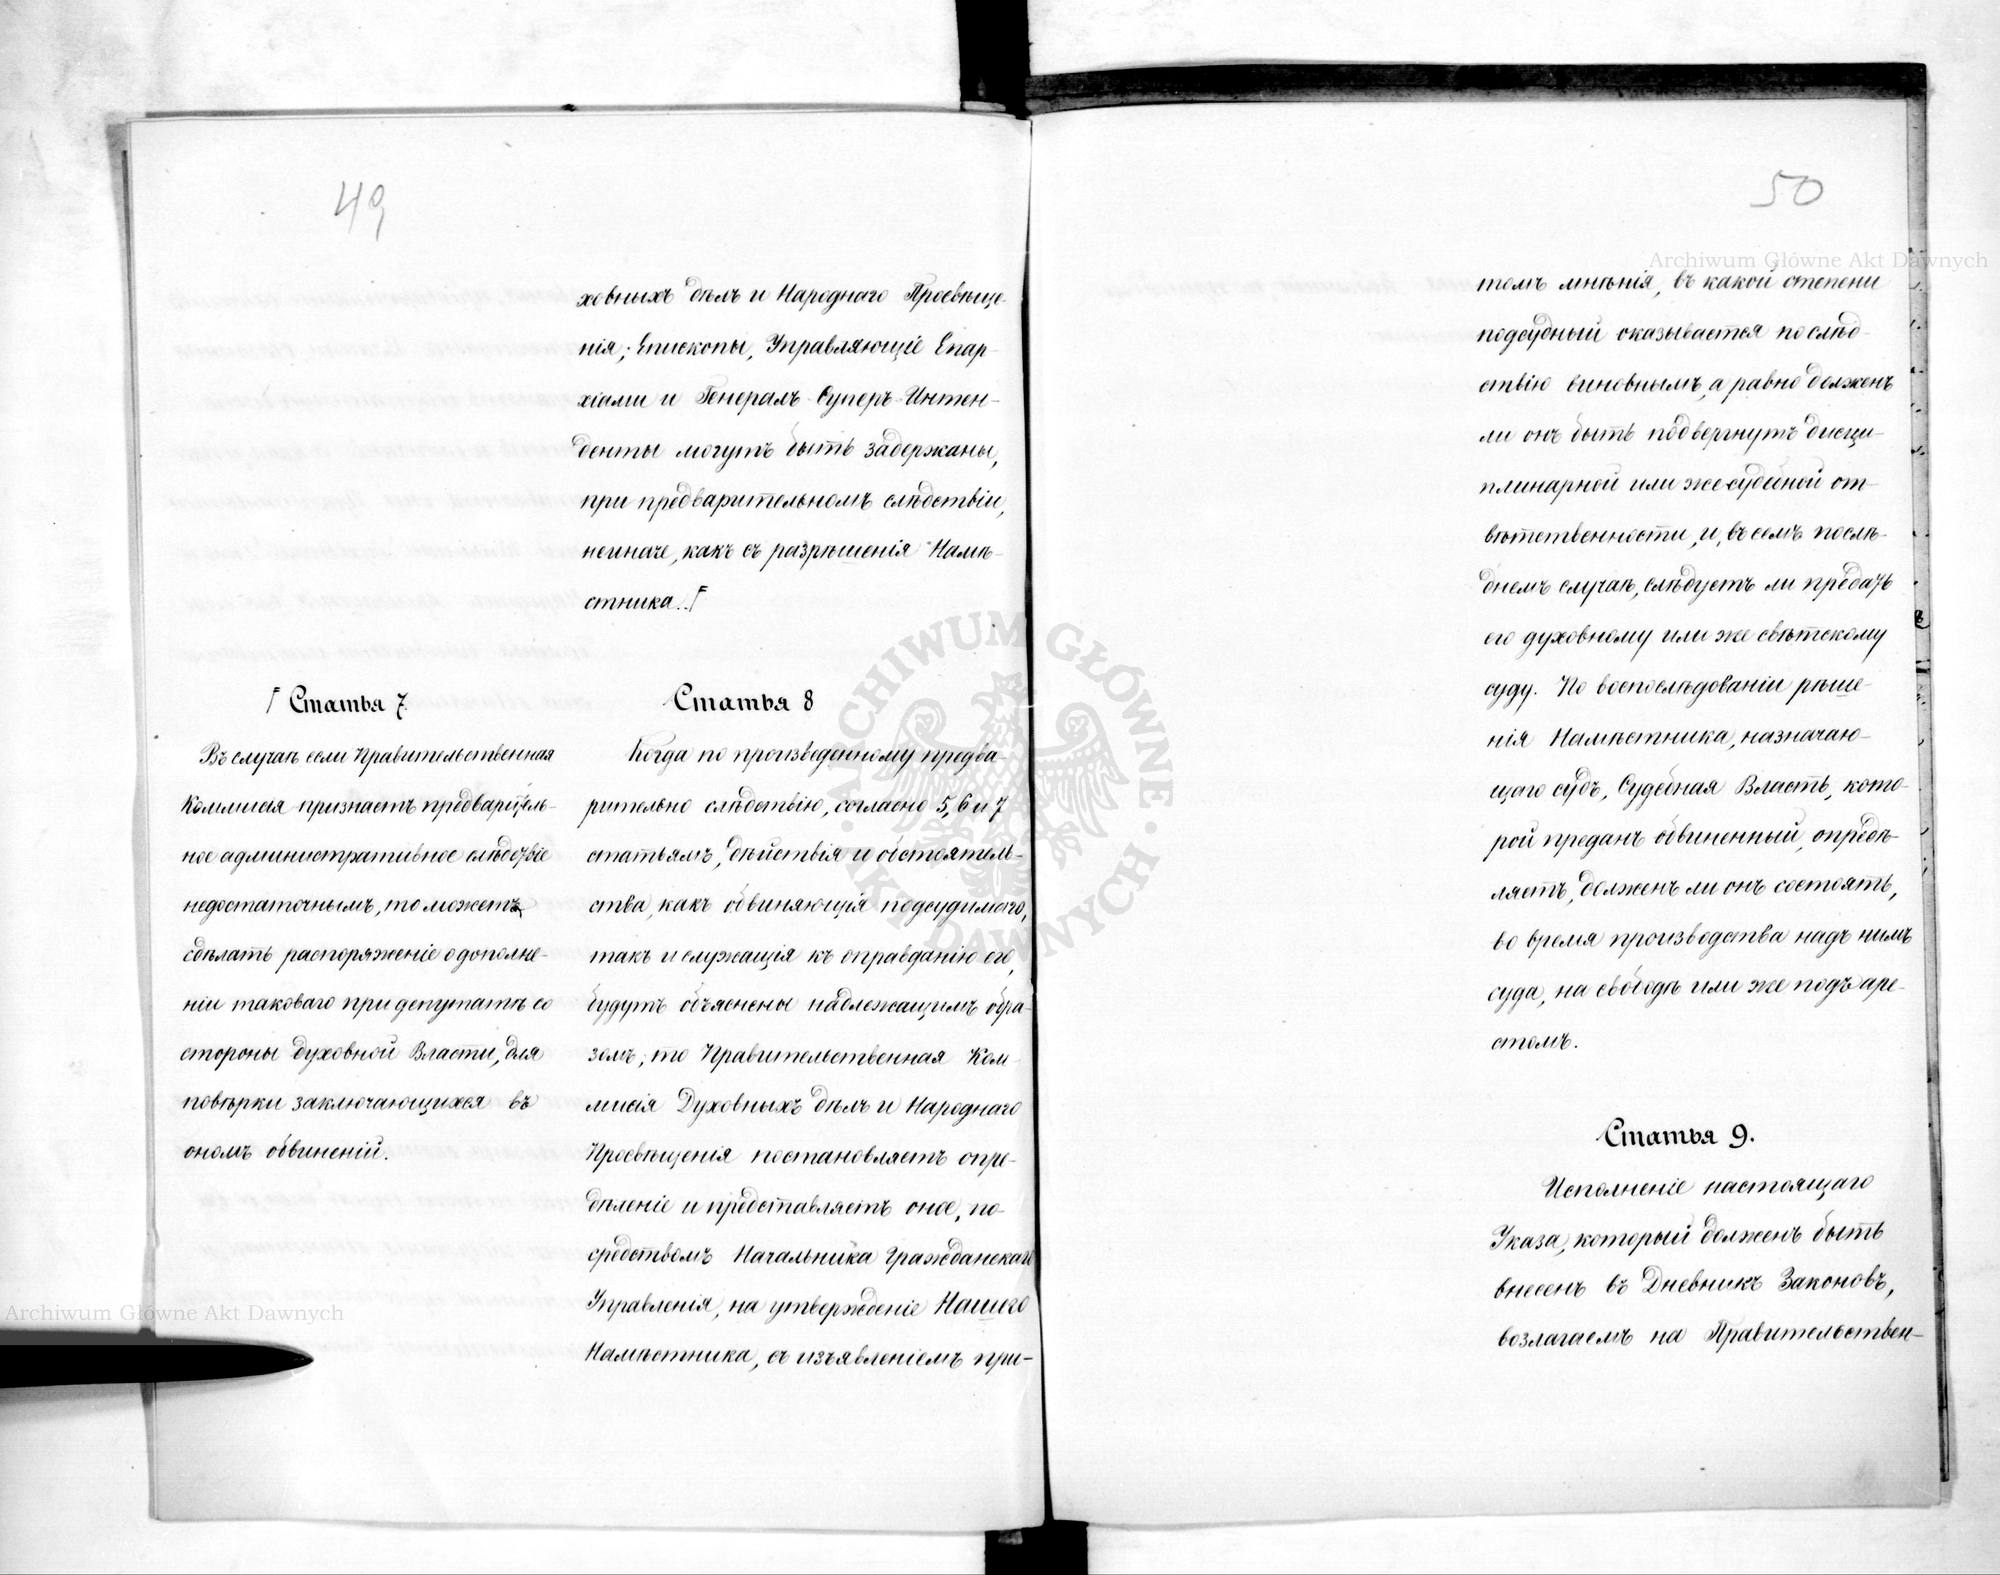 49
ховныхъ дѣлъ и Народнаго Просвѣще-
нія; Епископы, Управляющіе Епар-
хіями и Генералъ-Суперъ-Интен-
денты могутъ быть задержаны,
при предварительномъ слѣдствіи,
неиначе, какъ съ разрѣшенія Намѣ-
стника.
Статья 7.
Въ случаѣ если Правительственная
Коммисія признаетъ предваритель-
ное административное слѣдствіе
недостаточнымъ, то можетъ
сдѣлать распоряженіе о дополне-
ніи таковаго при депутатѣ со
стороны духовной Власти, для
повѣрки заключающихся въ
ономъ обвиненій.
Статья 8
Когда по произведенному предва-
рительно слѣдствію, согласно 5, 6 и 7
статьямъ, дѣйствія и обстоятель-
ства, какъ обвиняющія подсудимаго,
такъ и служащія къ оправданію его,
будутъ объяснены надлежащимъ обра-
зомъ; то Правительственная Ком-
мисія Духовныхъ дѣлъ и Народнаго
Просвѣщенія постановляетъ опре-
дѣленіе и представляетъ оное, по-
средствомъ Начальника Гражданскаго
Управленія, на утвержденіе Нашего
Намѣстника, съ изъявленіемъ при-
50
томъ мнѣнія, въ какой степени
подсудный оказывается по слѣд-
ствію виновнымъ, а равно долженъ
ли онъ быть подвергнутъ дисци-
плинарной или же судебной от-
вѣтственности, и, въ семъ послѣ-
днемъ случаѣ, слѣдуетъ ли предать
его духовному или же свѣтскому
суду. По воспослѣдованіи рѣше-
нія Намѣстника, назначаю-
щаго судъ, Судебная Власть, кото-
рой преданъ обвиненный, опредѣ-
ляетъ, долженъ ли онъ состоять,
во время производства надъ нимъ
суда, на свободѣ или же подъ аре-
стомъ.
Статья 9.
Исполненіе настоящаго
Указа, который долженъ быть
внесенъ въ Дневникъ Законовъ,
возлагаемъ на Правительствен-
Archiwum Główne Akt Dawnych
ARCHIWUM GŁÓWNE
AKT DAWNYCH
Archiwum Główne Akt Dawnych